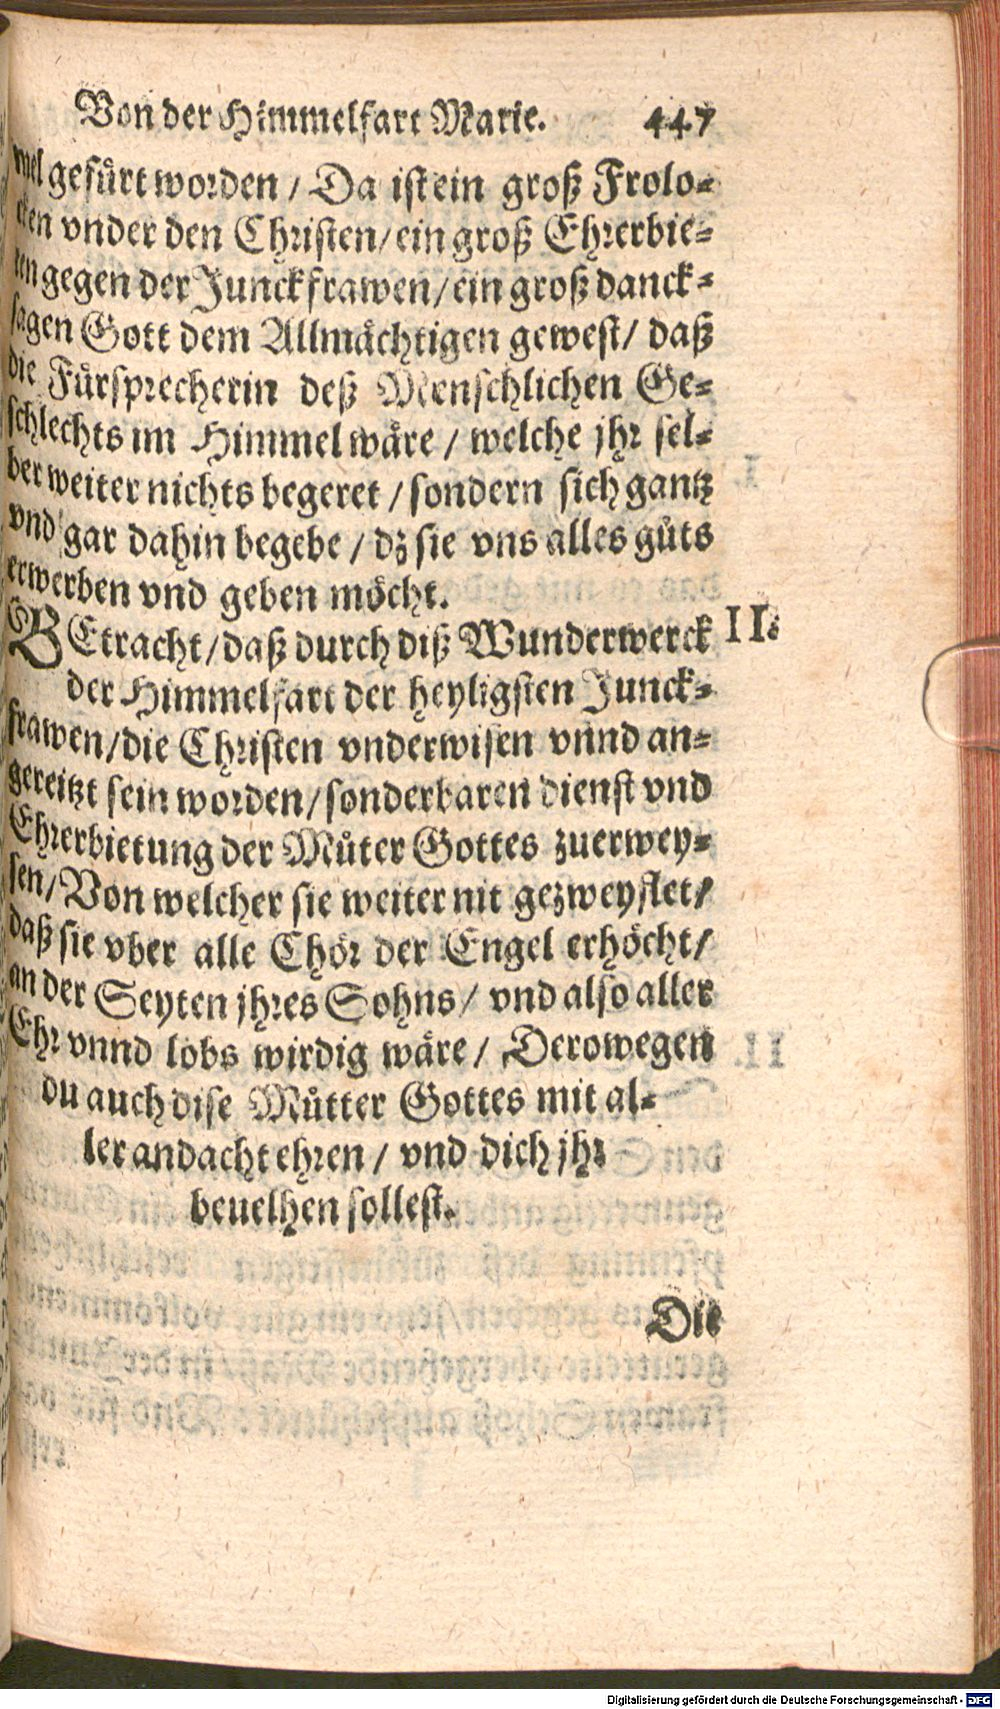 Von der Himmelfart Marie. 447
mel gefůrt worden / Da ist ein groß Frolo-
cken vnder den Christen / ein groß Ehrerbie-
ten gegen der Junckfrawen / ein groß danck-
sagen Gott dem Allmächtigen gewest / daß
die Fürsprecherin deß Menschlichen Ge-
schlechts im Himmel wäre / welche jhr sel-
ber weiter nichts begeret / sondern sich gantz
vnd gar dahin begebe / dz sie vns alles gůts
erwerben vnd geben möcht.
BEtracht / daß durch diß Wunderwerck II.
der Himmelfart der heyligsten Junck-
frawen / die Christen vnderwisen vnnd an-
gereitzt sein worden / sonderbaren dienst vnd
Ehrerbietung der Můter Gottes zuerwey-
sen / Von welcher sie weiter nit gezweyflet /
daß sie vber alle Chör der Engel erhöcht /
an der Seyten jhres Sohns / vnd also aller
Ehr vnnd lobs wirdig wäre / Derowegen
du auch dise Můtter Gottes mit al-
ler andacht ehren / vnd dich jhr
beuelhen sollest.
Die
Digitalisierung gefördert durch die Deutsche Forschungsgemeinschaft - DFG